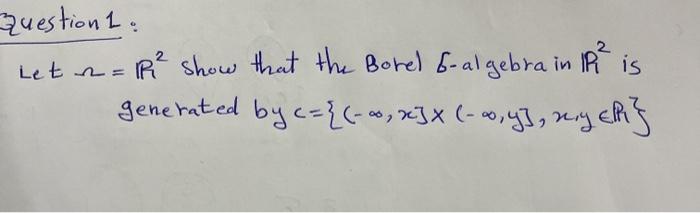 Question 1 :
Let Ω = ℝ² show that the Borel δ-algebra in ℝ² is
generated by c = {(-∞, x] × (-∞, y], x,y ∈ ℝ}